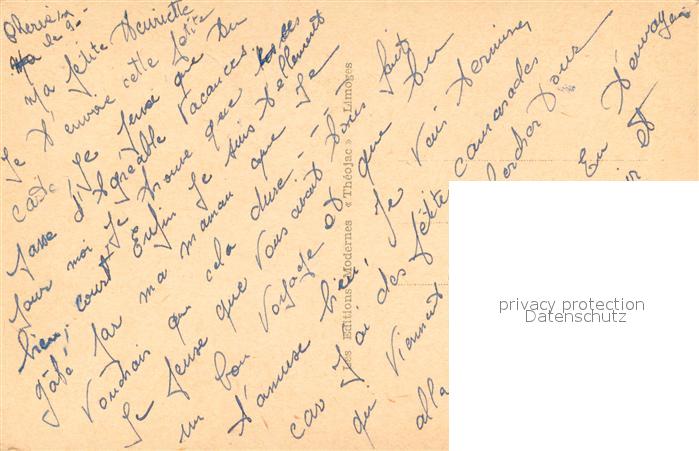 Ma petite Henriette
Je t'envoie cette petite
carte. Je pense que tu
passe d'Agréable Vacances.
pour moi je trouve que
bien court Enfin je suis tellement
gâté par ma maman que je
Voudrais que cela dure - - -
Je pense que Vous avait fait
un bon Voyage et que tu
t'amuse bien, je Vais terminer
car J'ai des petite camarades
qui Viennent chercher pour
alla
En
et t'envoyer
Les Editions Modernes « Théojac » - Limoges
privacy protection
Datenschutz